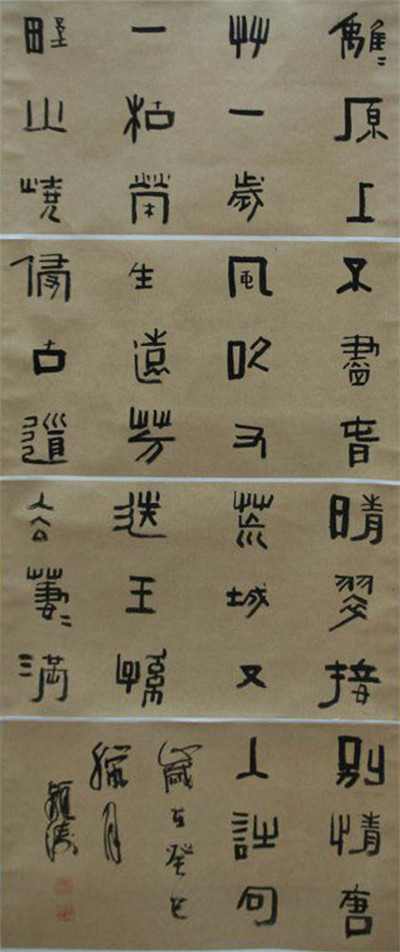 離〻原上
艸一歲
一枯榮
野火燒
不盡春
風吹又
生遠芳
侵古道
晴翠接
荒城又
送王孫
去萋〻滿
別情唐
人詩句
歲在癸巳
臘月